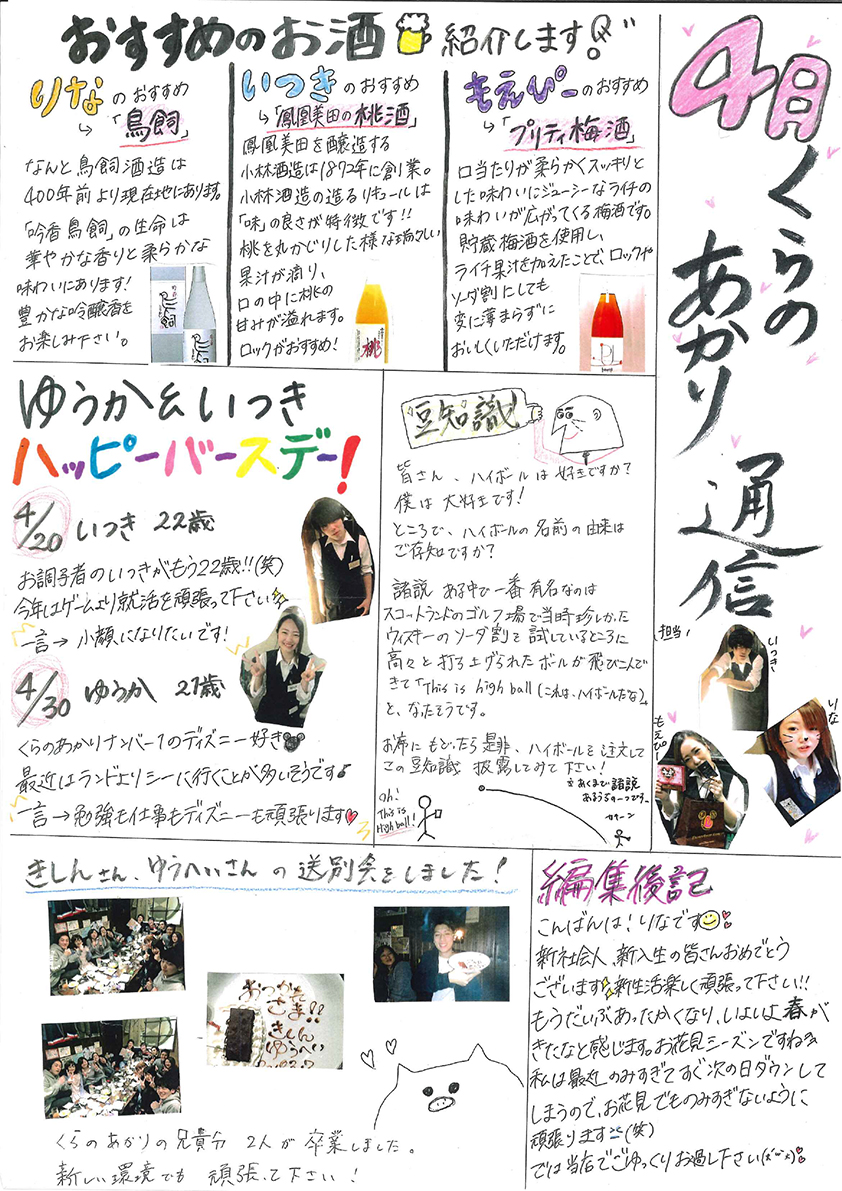 おすすめのお酒 紹介します!
4月 くらの
あかり
通信
りなのおすすめ
→「鳥飼」
なんと鳥飼酒造は
400年前より現在地にあります。
「吟香鳥飼」の生命は
華やかな香りと柔らかな
味わいにあります!
豊かな吟醸香を
お楽しみ下さい。
いつきのおすすめ
→「鳳凰美田の桃酒」
鳳凰美田を醸造する
小林酒造は1872年に創業。
小林酒造の造るリキュールは
「味」の良さが特徴です!!
桃を丸かじりした様な瑞々しい
果汁が滴り、
口の中に桃の
甘みが溢れます。
ロックがおすすめ!
桃
もえぴーのおすすめ
→「プリティ梅酒」
口当たりが柔らかくスッキリと
した味わいにジューシーなライチの
味わいが広がってくる梅酒です。
貯蔵梅酒を使用し、
ライチ果汁を加えたことで、ロックや
ソーダ割にしても
変に薄まらずに
おいしくいただけます。
ゆうか&いつき
ハッピーバースデー!
4/20 いつき 22歳
お調子者のいつきがもう22歳!!(笑)
今年はゲームより就活を頑張って下さい
一言→ 小顔になりたいです!
4/30 ゆうか 21歳
くらのあかりナンバー1のディズニー好き
最近はランドよりシーに行くことが多いそうです♪
一言→勉強も仕事もディズニーも頑張ります
豆知識
皆さん、ハイボールは好きですか?
僕は大好きです!
ところで、ハイボールの名前の由来は
ご存知ですか?
諸説ある中で一番有名なのは
スコットランドのゴルフ場で当時珍しかった
ウィスキーのソーダ割を試しているところに
高々と打ち上げられたボールが飛び込んで
きて「This is high ball(これは、ハイボールだな)」
と、なったそうです。
お席にもどったら是非、ハイボールを注文して
この豆知識 披露してみて下さい!
※あくまで諸説
あるうちの一つです。
oh!
This is
High ball!
カキーン
担当
いつき
りな
もえぴー
きしんさん、ゆうへいさんの送別会をしました!
おつかれ
さま!!
きしん
ゆうへい
くらのあかりの兄貴分 2人が卒業しました。
新しい環境でも 頑張って下さい!
編集後記
こんばんは!りなです
新社会人、新入生の皆さんおめでとう
ございます 新生活楽しく頑張って下さい!!
もうだいぶあったかくなり、いよいよ春が
きたなと感じます。お花見シーズンですね
私は最近のみすぎてすぐ次の日ダウンして
しまうので、お花見でものみすぎないように
頑張ります(笑)
では当店でごゆっくりお過し下さい